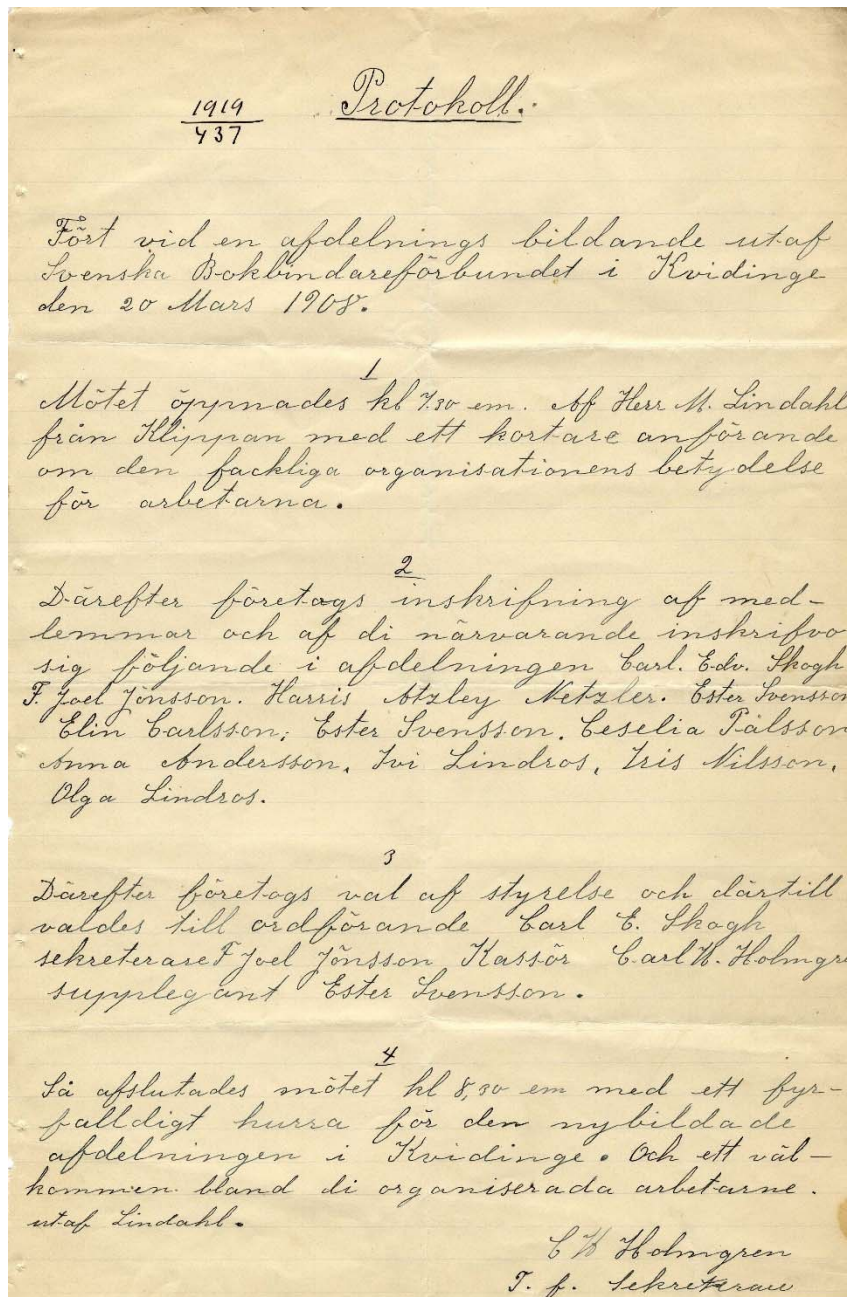 1919
437
Protokoll.
Fört vid en afdelnings bildande utaf
Svenska Bokbindareförbundet i Kvidinge
den 20 Mars 1908.
1
Mötet öppnades kl 7.30 em. Af Herr M. Lindahl
från Klippan med ett kortare anförande
om den fackliga organisationens betydelse
för arbetarna.
2
Därefter företogs inskrifning af med-
lemmar och af di närvarande inskrifvo
sig följande i afdelningen Carl. Edv. Skogh
F. Joel Jönsson. Harris Atzley Netzler. Ester Svensson
Elin Carlsson, Ester Svensson, Ceselia Pålsson
Anna Andersson, Ivi Lindros, Iris Nilsson,
Olga Lindros.
3
Därefter företogs val af styrelse och därtill
valdes till ordförande Carl E. Skogh
sekreterare F Joel Jönsson Kassör Carl W. Holmgre
supplegant Ester Svensson.
4
Så afslutades mötet kl 8,30 em med ett fyr-
falldigt hurra för den nybildade
afdelningen i Kvidinge. Och ett väl-
kommen bland di organiserada arbetarne.
utaf Lindahl.
C W Holmgren
T. f. Sekreterare